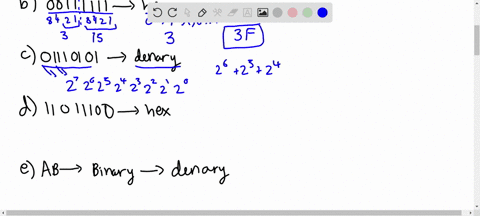 b) 00111111 →
8421 8421
3 15 3 3F
c) 01110101 → denary 2⁶ + 2⁵ + 2⁴
2⁷ 2⁶ 2⁵ 2⁴ 2³ 2² 2¹ 2⁰
d) 11011100 → hex
e) AB → Binary → denary